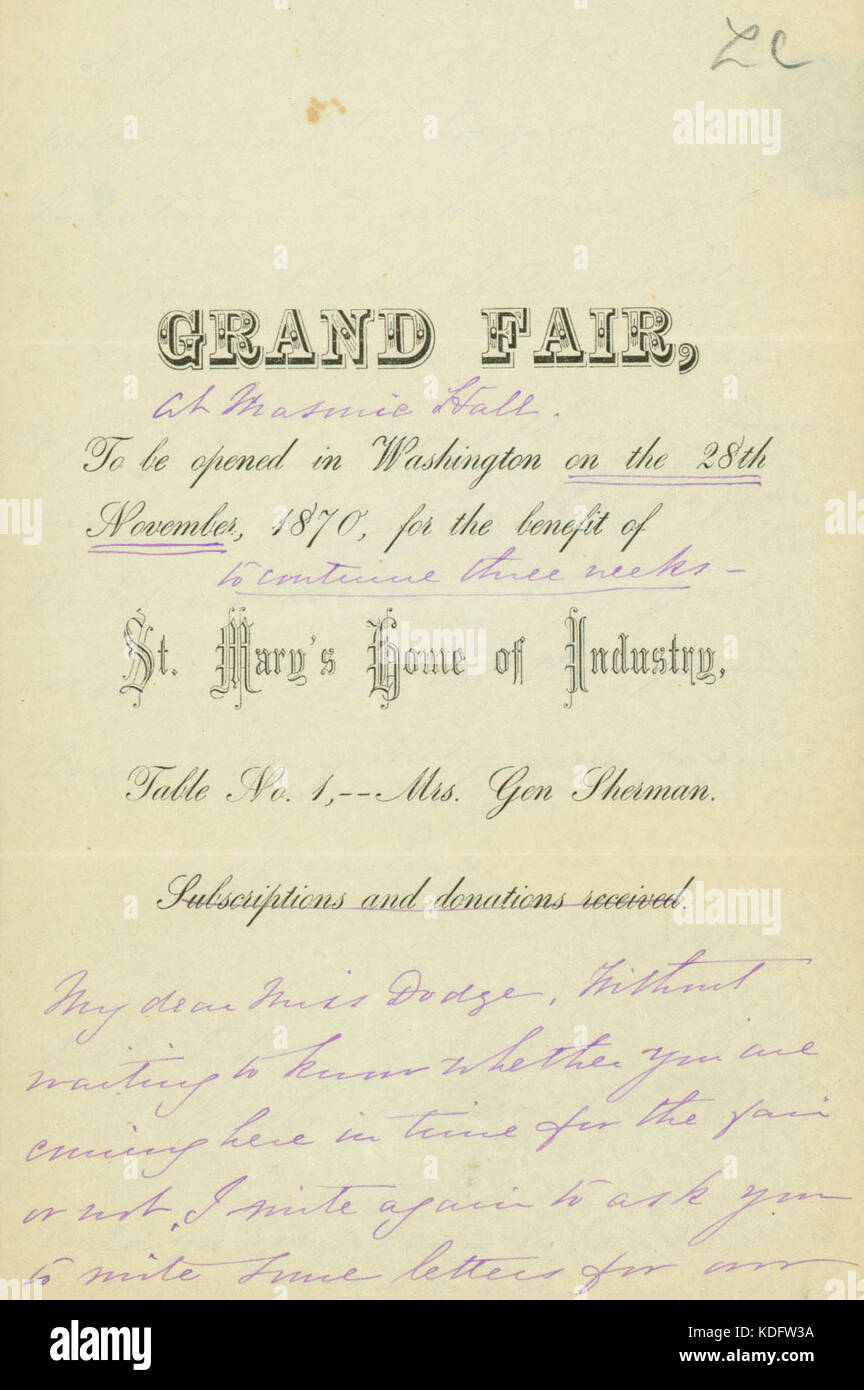 LC
GRAND FAIR,
At Masonic Hall.
To be opened in Washington on the 28th
November, 1870, for the benefit of
to continue three weeks –
St. Mary's Home of Industry,
Table No. 1,--Mrs. Gen Sherman.
Subscriptions and donations received.
My dear Miss Dodge, Without
waiting to know whether you are
coming here in time for the fair
or not, I write again to ask you
to write some letters for our
alamy
Image ID: KDFW3A
www.alamy.com